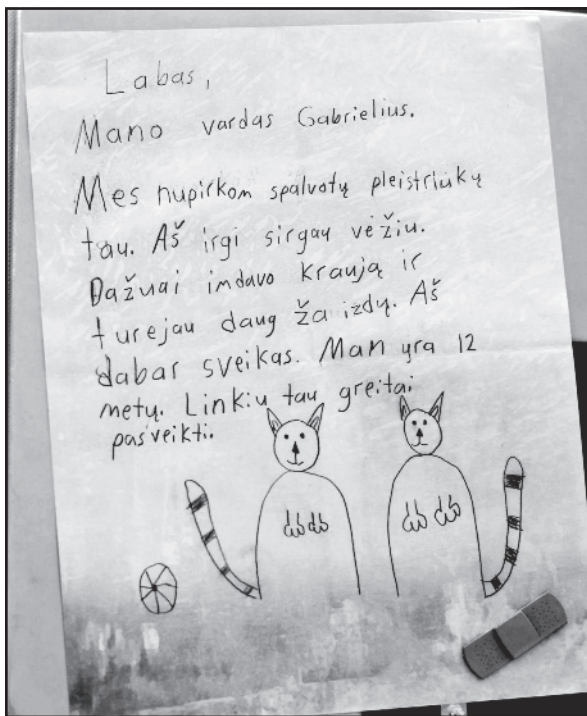 Labas,
Mano vardas Gabrielius.
Mes nupirkom spalvotų pleistriukų
tau. Aš irgi sirgau vėžiu.
Dažnai imdavo kraują ir
turejau daug žaizdų. Aš
dabar sveikas. Man yra 12
metų. Linkiu tau greitai
pasveikti.